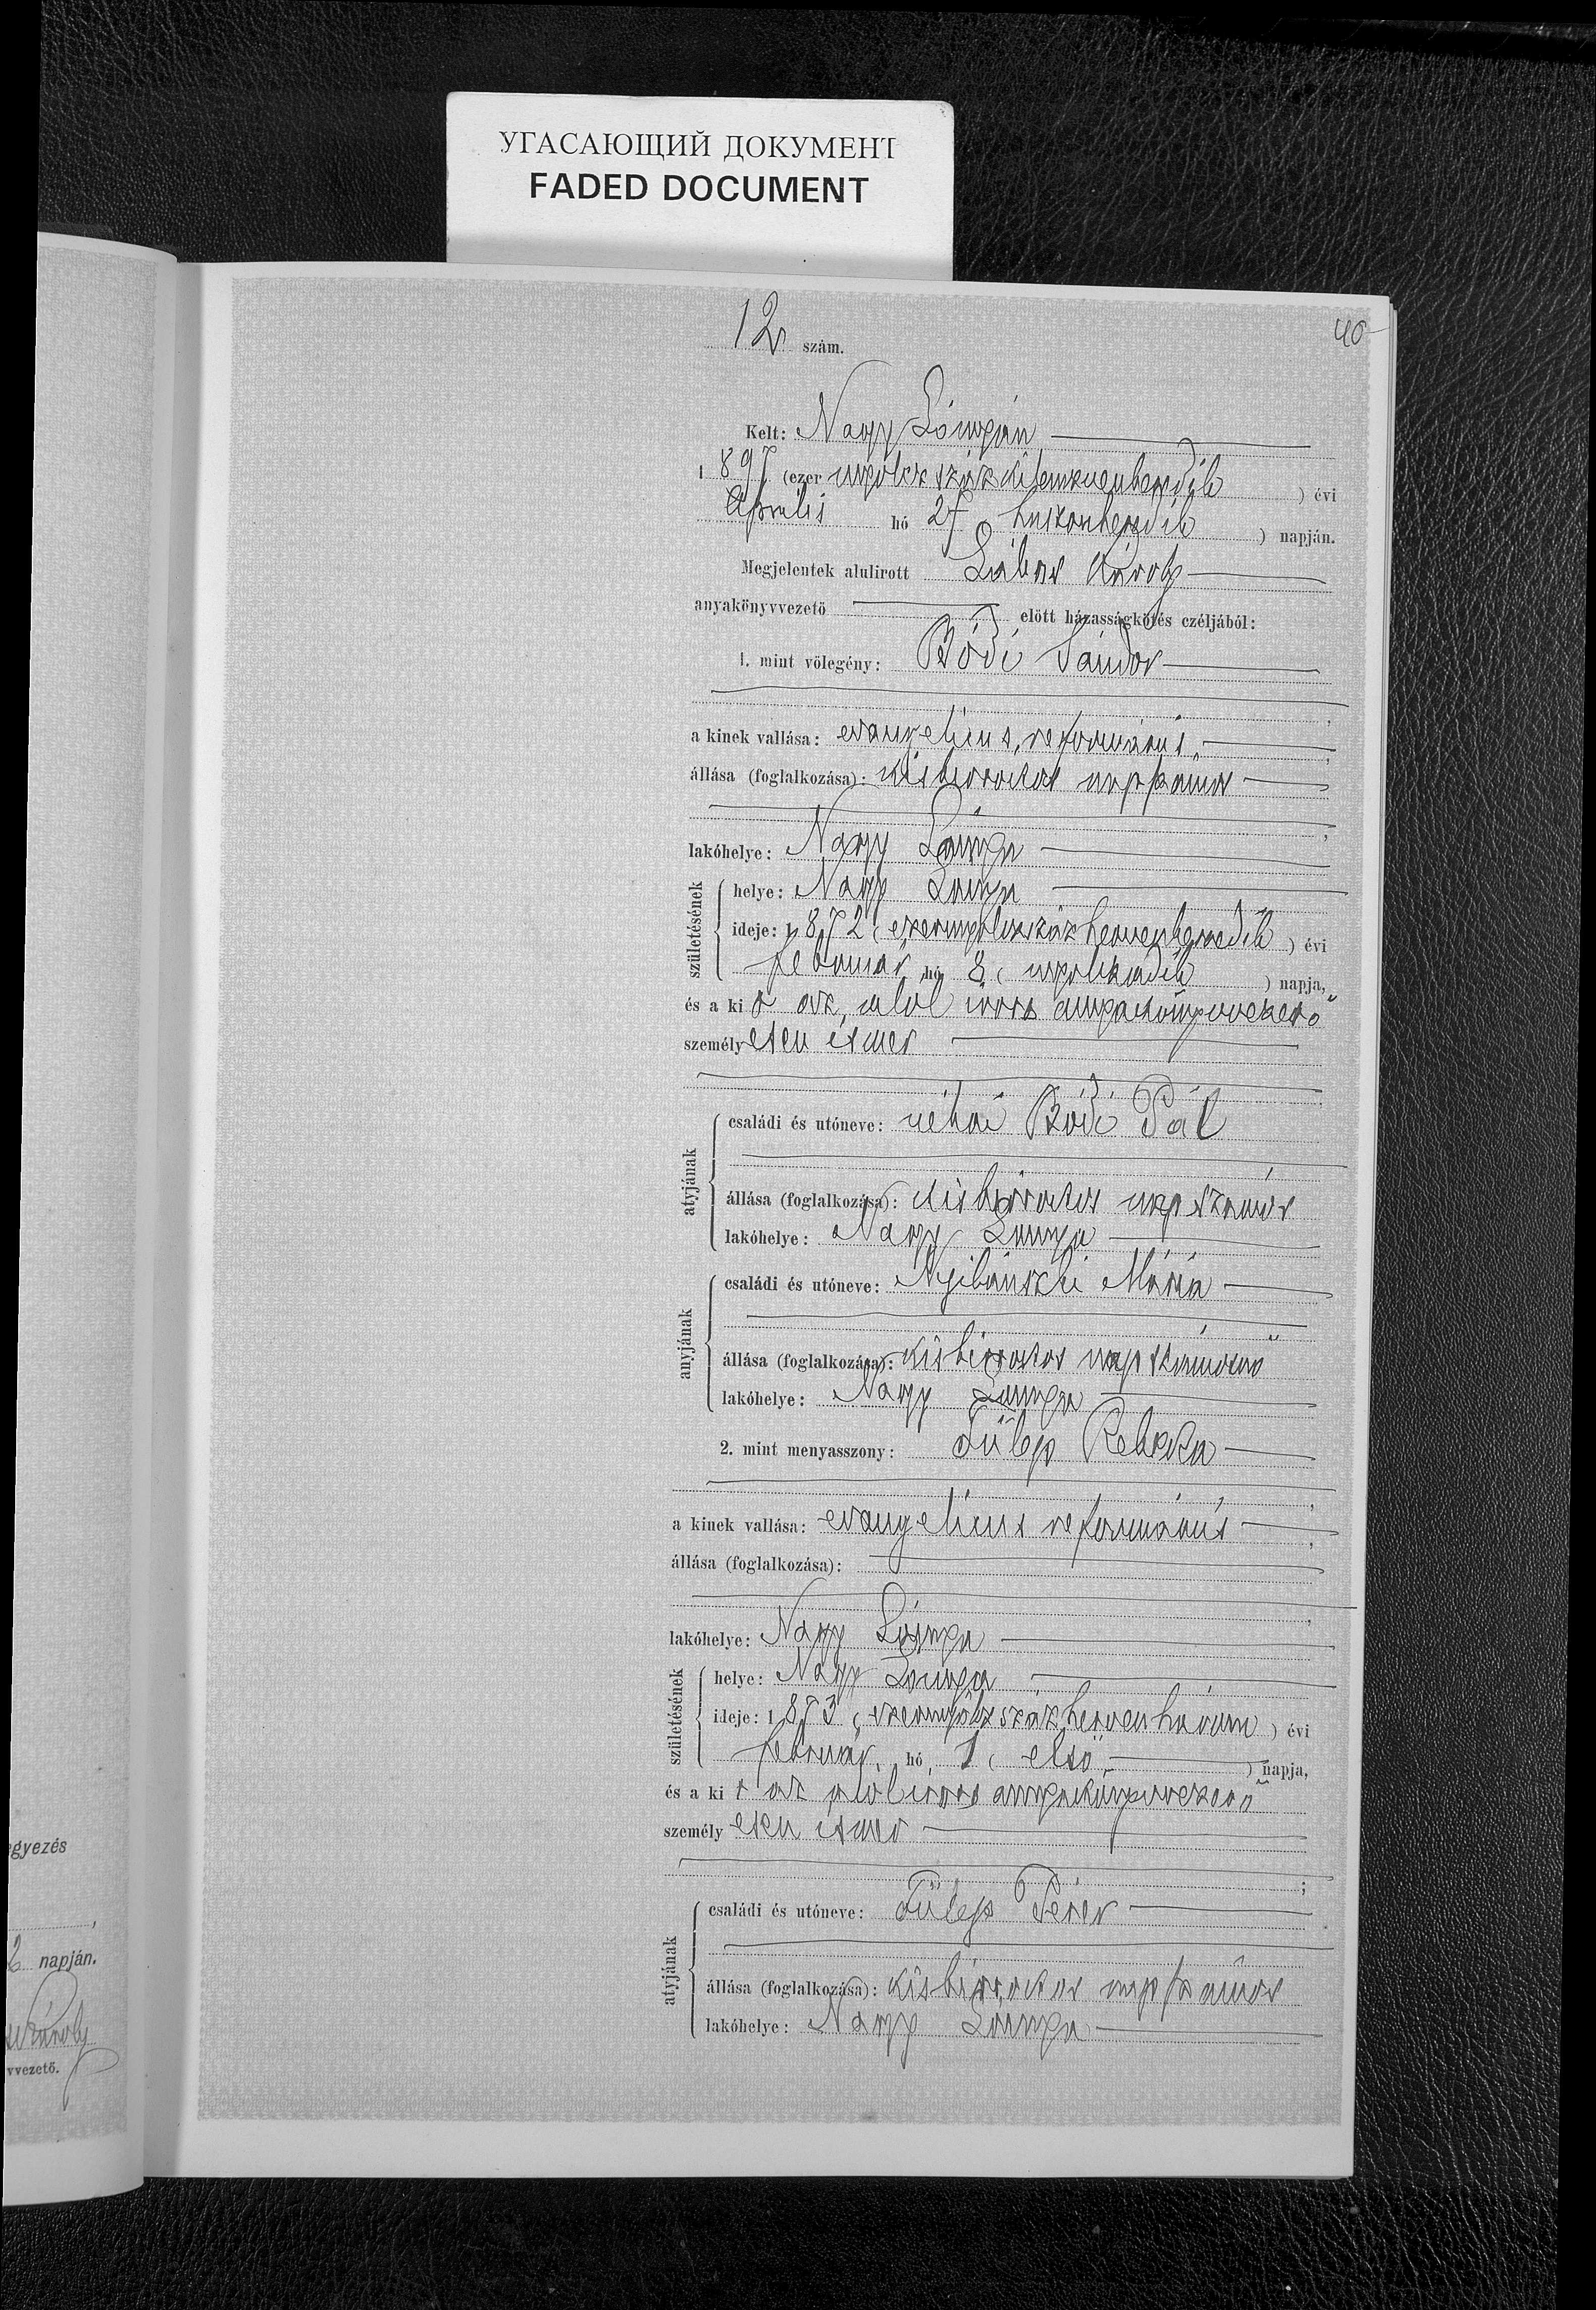 УГАСАЮЩИЙ ДОКУМЕНТ
FADED DOCUMENT
40
12 szám.
Kelt: Nagy Lónyán
1897 (ezer nyolcz száz kilenczvenhetedik) évi
április hó 27 (huszonhetedik) napján.
Megjelentek alulirott Lábas Károly
anyakönyvvezető előtt házasságkötés czéljából:
1. mint vőlegény: Bódi Sándor
a kinek vallása: evangelicus, református,
állása (foglalkozása): kisbirtokos napszámos
lakóhelye: Nagy Lónya
születésének
helye: Nagy Lónya
ideje: 1872 (ezernyolczszáz hetvenkettedik) évi
február hó 8 (nyolczadik) napja,
és a kit az alólirott anyakönyvvezető
személyesen ismer
atyjának
családi és utóneve: néhai Bódi Pál
állása (foglalkozása): kisbirtokos napszámos
lakóhelye: Nagy Lónya
anyjának
családi és utóneve: Mária
állása (foglalkozása): kisbirtokos napszámosnő
lakóhelye: Nagy Lónya
2. mint menyasszony: Fülep Rebeka
a kinek vallása: evangelicus református
állása (foglalkozása):
lakóhelye: Nagy Lónya
születésének
helye: Nagy Lónya
ideje: 1873 (ezernyolczszáz hetvenhárom) évi
február hó 1 (első) napja,
és a kit az alólirott anyakönyvvezető
személyesen ismer
atyjának
családi és utóneve: Fülep Péter
állása (foglalkozása): kisbirtokos napszámos
lakóhelye: Nagy Lónya
egyezés
napján.
Károly
vvezető.